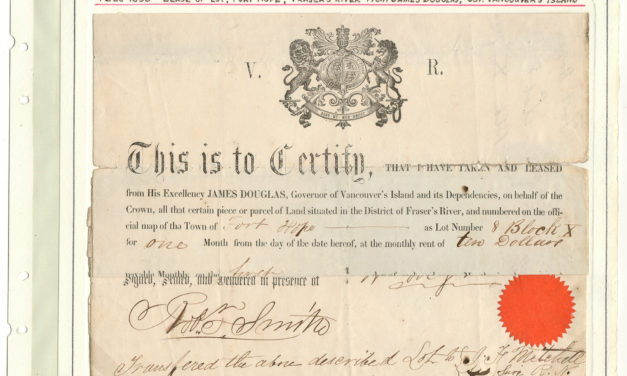 LEASE OF LOT, FORT HOPE, FRASER'S RIVER FROM JAMES DOUGLAS, GOV. VANCOUVER'S ISLAND
V. R.
This is to Certify, THAT I HAVE TAKEN AND LEASED
from His Excellency JAMES DOUGLAS, Governor of Vancouver's Island and its Dependencies, on behalf of the
Crown, all that certain piece or parcel of Land situated in the District of Fraser's River, and numbered on the offi-
cial map of the Town of Fort Hope as Lot Number 8 Block X
for one Month from the day of the date hereof, at the monthly rent of ten Dollars
payable Monthly
Signed, Sealed, and Delivered in presence of
Robt. T. Smith
Transfered the above described Lot to J. H. Mitchell